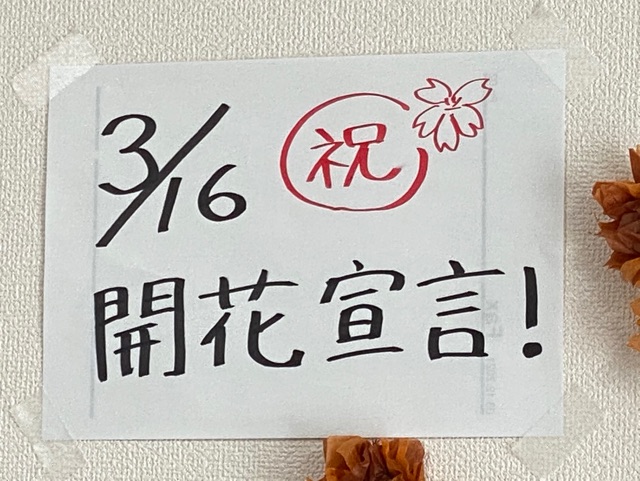 3/16 祝
開花宣言!